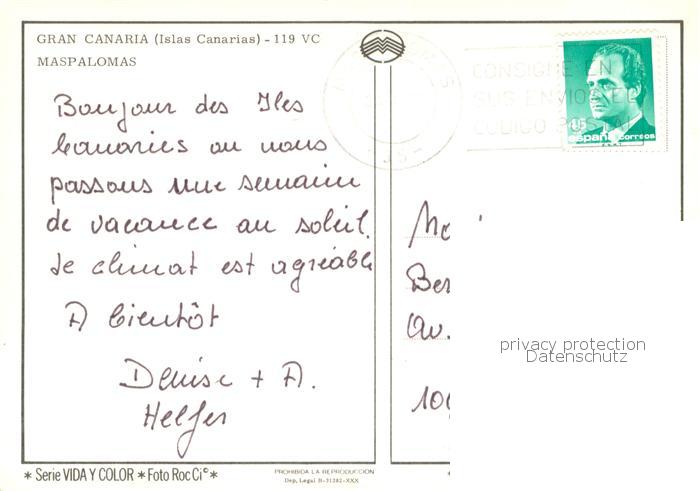 GRAN CANARIA (Islas Canarias) - 119 VC
MASPALOMAS
Bonjour des Iles
Canaries ou nous
passons une semaine
de vacance au soleil.
Le climat est agréable
A bientôt
Denise + A.
Helfer
CONSIGNE EN
SUS ENVIOS EL
CODIGO POSTAL
45
españa correos
Ber
Av.
privacy protection
Datenschutz
* Serie VIDA Y COLOR * Foto Roc Cíº *
PROHIBIDA LA REPRODUCCION
Dep. Legal B-31282-XXX